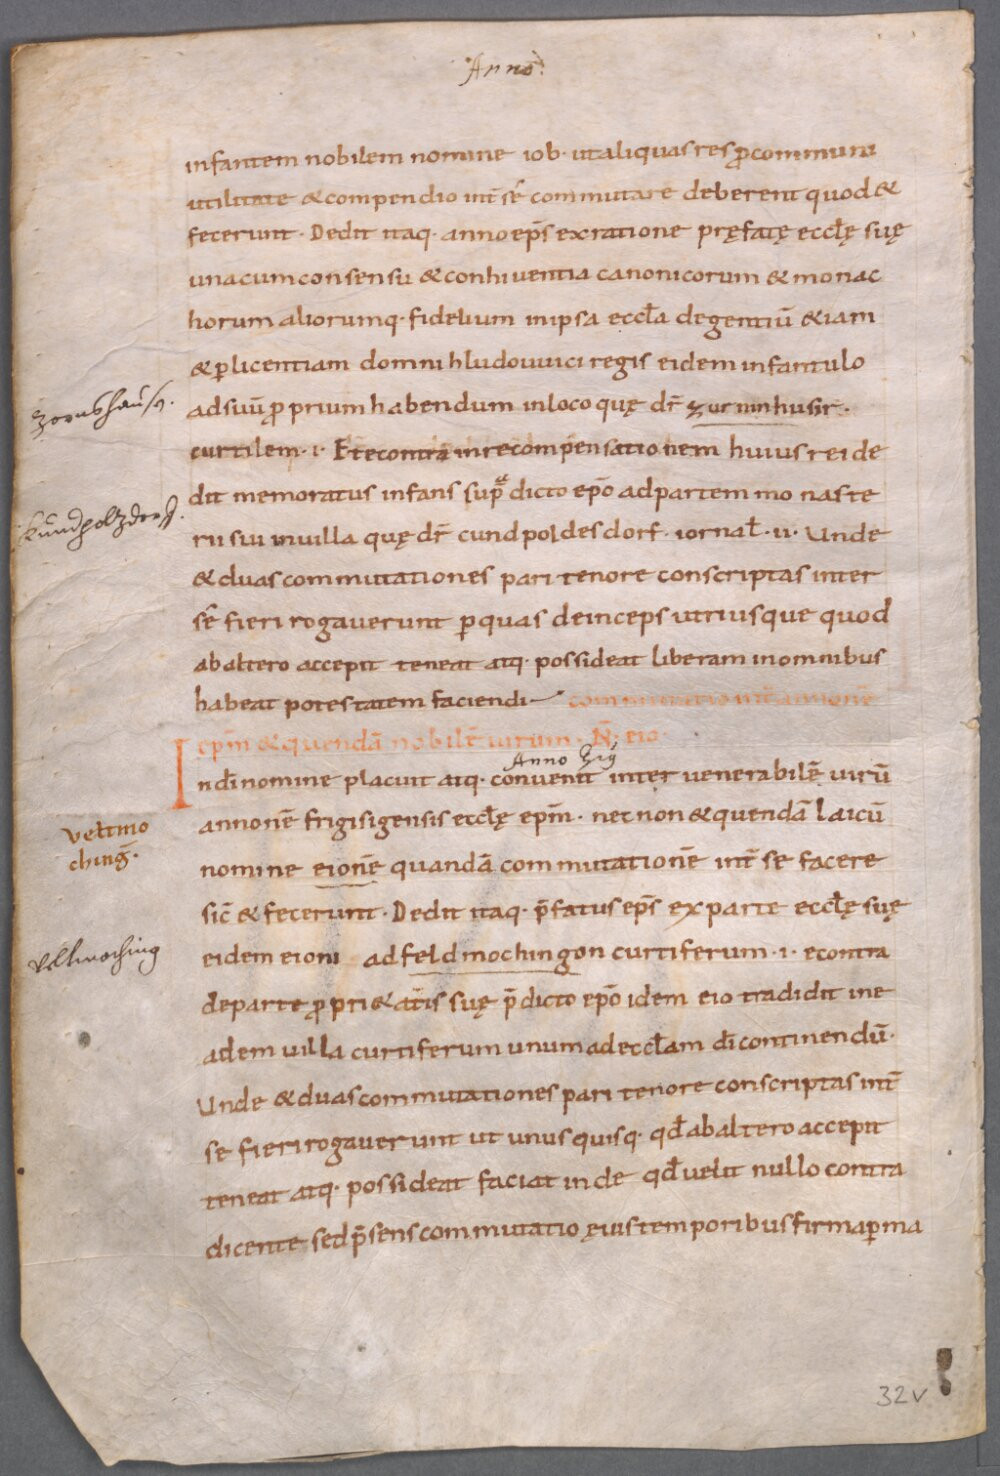 Anno.
infantem nobilem nomine iob· ut aliquas res ꝓ communi
utilitate & compendio int̄ sē commutare deberent quod &
fecerunt· Dedit itaq· anno ep̄s ex ratione pręfatę eccłę suę
una cum consensu & conhiventia canonicorum & monac
horum aliorumq· fidelium in ipsa eccła degentiū & iam
& ꝑ licentiam domni hludouuici regis eidem infantulo
zornshausn.
ad suū ꝓprium habendum in loco quę dr̄ zurninhusir·
curtilem· i· Et econtra in recompensationem huius rei de
dit memoratus infans suprędicto ep̄o ad partem monaste
kundpoltzdorf.
rii sui in uilla quę dr̄ cundpoldesdorf· iornał· ii· Unde
& duas commutationes pari tenore conscriptas inter
sē fieri rogaverunt ꝑ quas deinceps utriusque quod
ab altero accepit teneat atq· possideat liberam in omnibus
habeat potestatem faciendi commutatio int̄ annonē
ep̄m & quendā nobilē uirum· N̄· eio·
Anno
In dī nomine placuit atq· convenit inter venerabilē uirū
veltmo
ching̅·
annonē frigisigensis eccłę ep̄m· nec non & quendā laicū
nomine eionē quandā commutationē int̄ se facere
sic̄ & fecerunt· Dedit itaq· p̄fatus ep̄s ex parte eccłę suę
veltmoching
eidem eioni ad feldmochingon curtiferum· i· econtra
de parte ꝓpri&atis suę p̄dicto ep̄o idem eio tradidit in e
adem uilla curtiferum unum ad eccłam dī continendū·
Unde & duas commutationes pari tenore conscriptas int̄
se fieri rogaverunt ut unus quisq· qđ ab altero accepit
teneat atq· possideat faciat inde qđ velit nullo contra
dicente sed p̄sens commutatio ęius temporibus firma ꝑma
32v